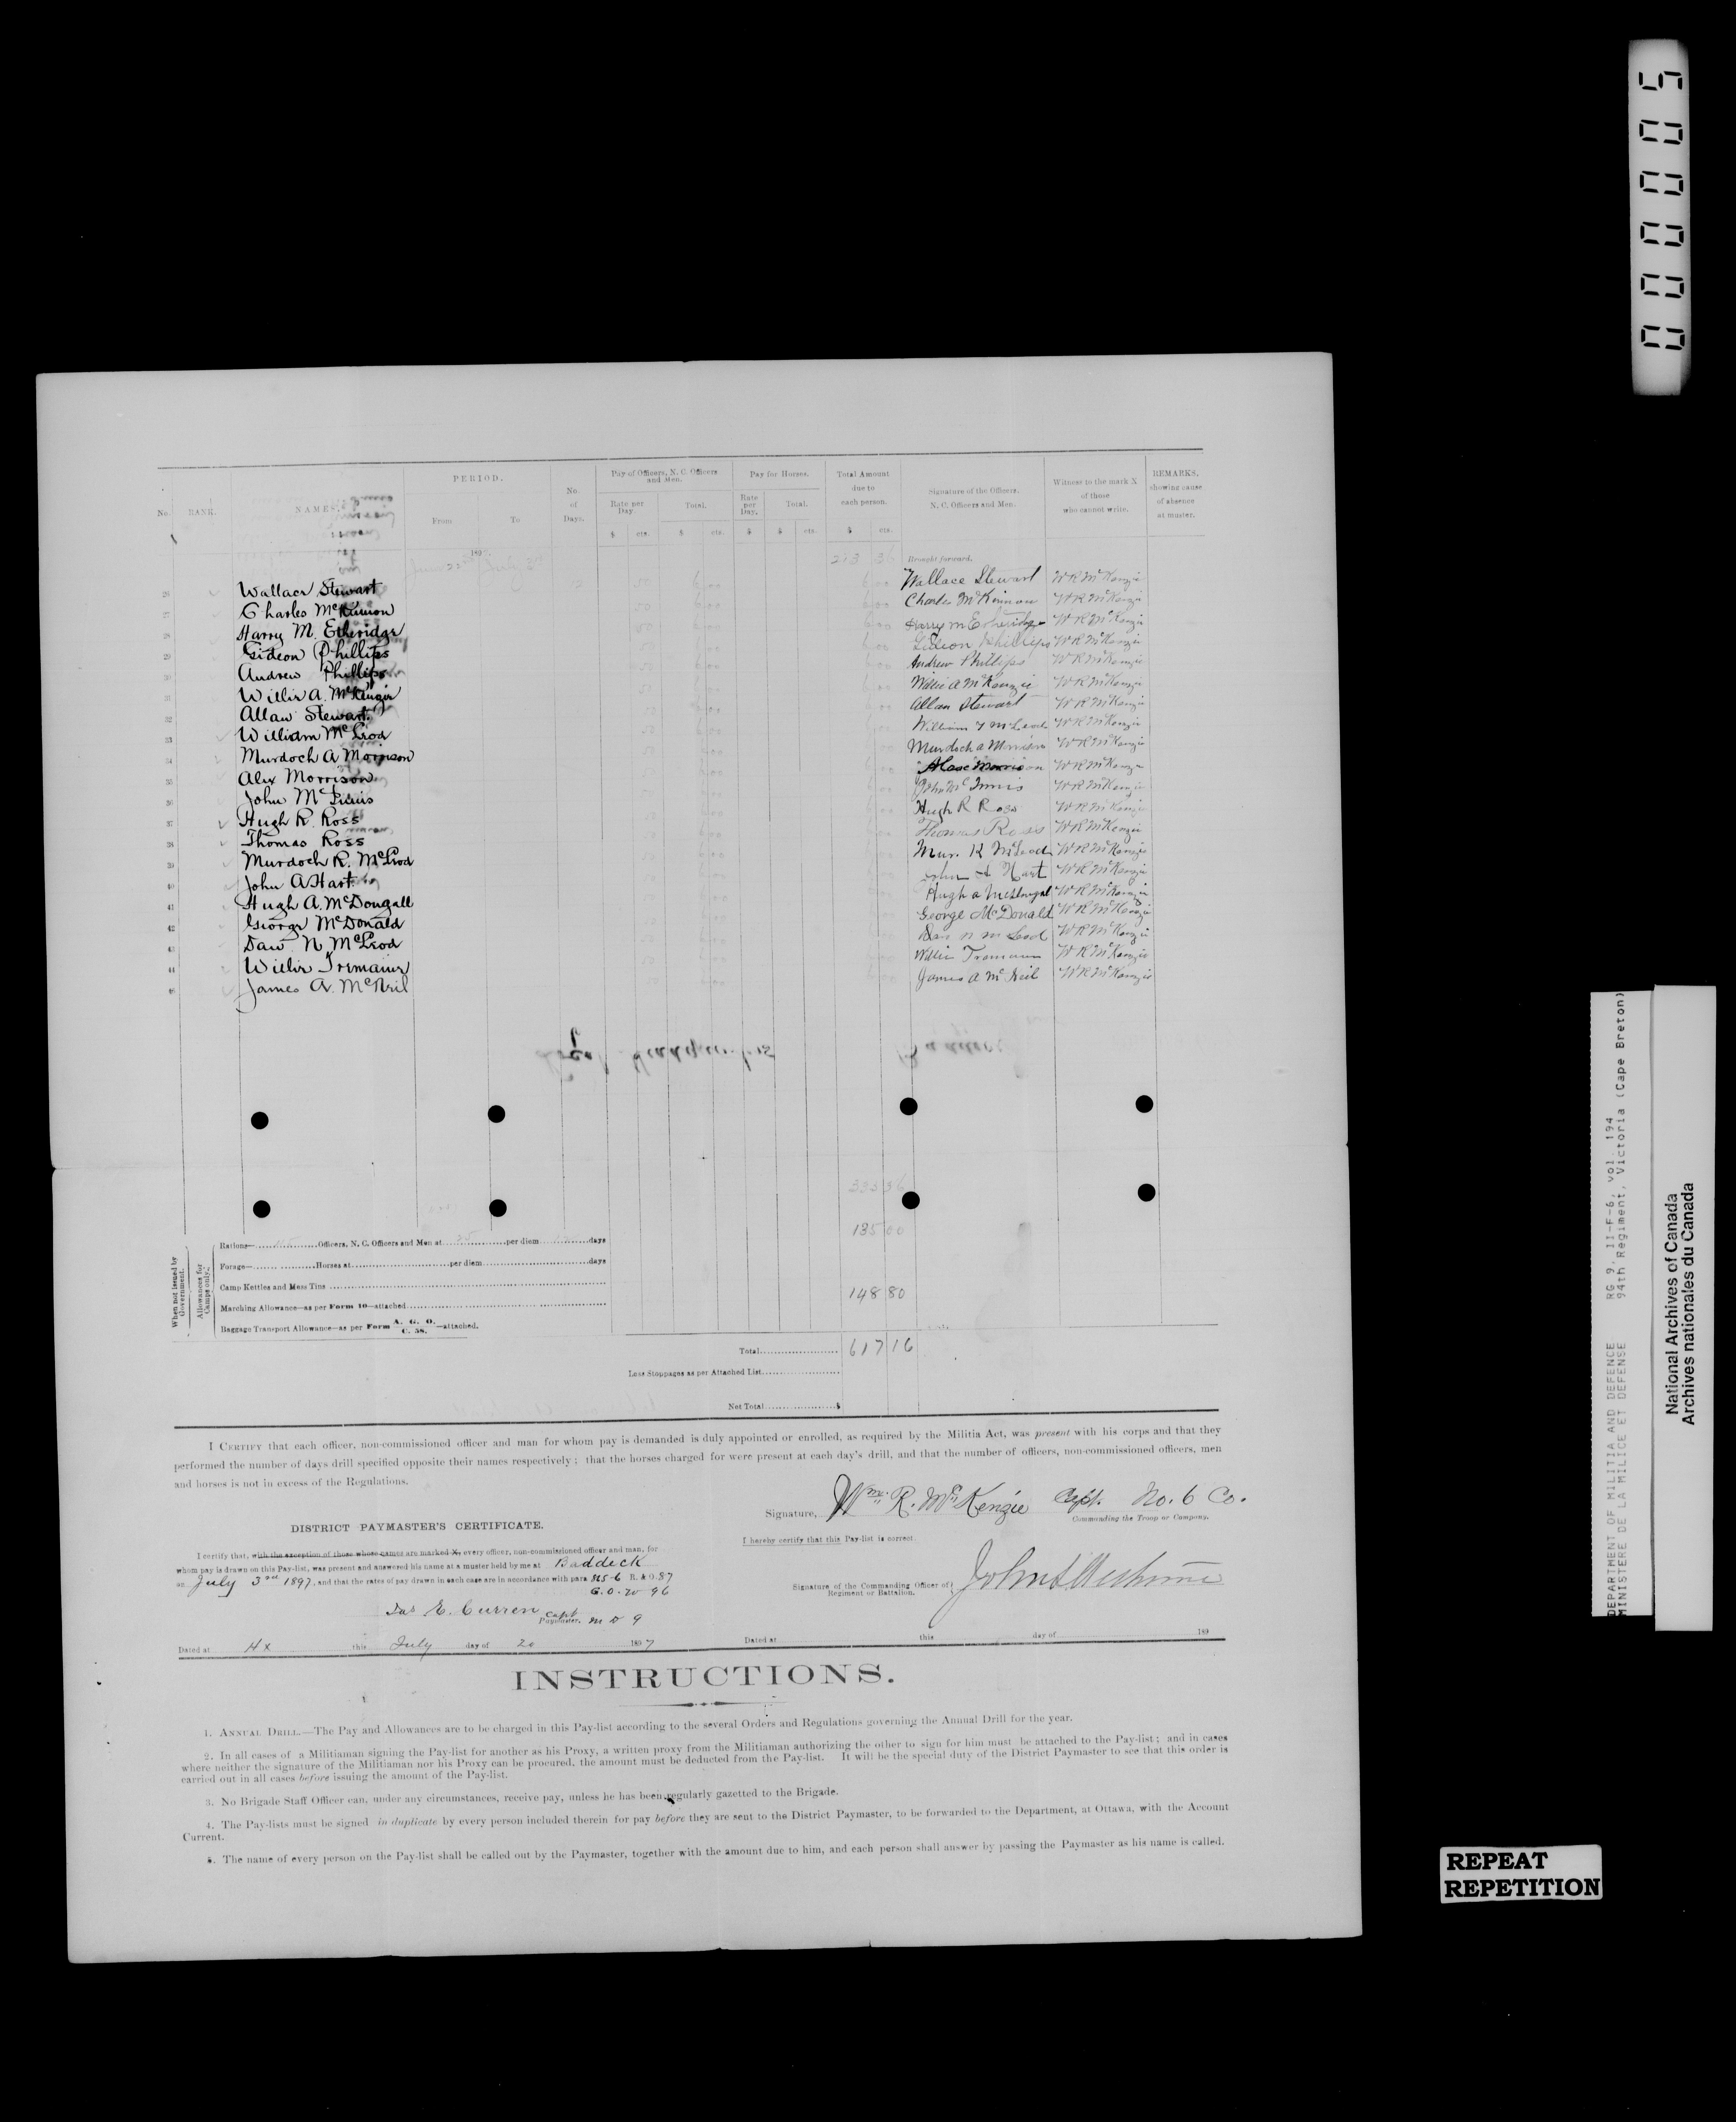 000005
No. RANK. NAMES. PERIOD. From To No. of Days. Pay of Officers, N. C. Officers and Men. Rate per Day. Total. Pay for Horses. Rate per Day. Total. Total Amount due to each person. Signature of the Officers, N. C. Officers and Men. Witness to the mark X of those who cannot write. REMARKS, showing cause of absence at muster.
$ cts. $ cts. $ $ cts. $ cts.
189 213 36 Brought forward.
26 Wallace Stewart 12 50 6 00 6 00 Wallace Stewart W R McKenzie
27 Charles McKinnon 50 6 00 6 00 Charles McKinnon W R McKenzie
28 Harry M. Etheridge 50 6 00 6 00 Harry M Etheridge W R McKenzie
29 Gideon Phillips 50 6 00 6 00 Gideon Phillips W R McKenzie
30 Andrew Phillips 50 6 00 6 00 Andrew Phillips W R McKenzie
31 Willie A. McKenzie 50 6 00 6 00 Willie A McKenzie W R McKenzie
32 Allan Stewart 50 6 00 6 00 Allan Stewart W R McKenzie
33 William McLeod 50 6 00 6 00 William McLeod W R McKenzie
34 Murdoch A Morrison 50 6 00 6 00 Murdoch a Morrison W R McKenzie
35 Alex Morrison 50 6 00 6 00 Morrison W R McKenzie
36 John McInnis 50 6 00 6 00 John McInnis W R McKenzie
37 Hugh R. Ross 50 6 00 6 00 Hugh R Ross W R McKenzie
38 Thomas Ross 50 6 00 6 00 Thomas Ross W R McKenzie
39 Murdoch R. McLeod 50 6 00 6 00 Mur. R McLeod W R McKenzie
40 John A Hart 50 6 00 6 00 John A Hart W R McKenzie
41 Hugh A. McDougall 50 6 00 6 00 Hugh a McDougal W R McKenzie
42 George McDonald 50 6 00 6 00 George McDonald W R McKenzie
43 Dan N. McLeod 50 6 00 6 00 Dan n mcLeod W R McKenzie
44 Willie Tremaine 50 6 00 6 00 Willie W R McKenzie
45 James A. McNeil 50 6 00 6 00 James A McNeil W R McKenzie
333 36
When not issued by Government. Allowances for Camps only.
Rations— 45 Officers, N. C. Officers and Men at 25 per diem 12 days 135 00
Forage— Horses at per diem days
Camp Kettles and Mess Tins
Marching Allowance—as per Form 10—attached 148 80
Baggage Transport Allowance—as per Form A. G. O. C. 58. —attached.
Total 617 16
Less Stoppages as per Attached List
Net Total $
I CERTIFY that each officer, non-commissioned officer and man for whom pay is demanded is duly appointed or enrolled, as required by the Militia Act, was present with his corps and that they
performed the number of days drill specified opposite their names respectively; that the horses charged for were present at each day's drill, and that the number of officers, non-commissioned officers, men
and horses is not in excess of the Regulations.
Signature, Wm. R. McKenzie Capt. No. 6 Co.
Commanding the Troop or Company.
DISTRICT PAYMASTER'S CERTIFICATE.
I hereby certify that this Pay-list is correct.
I certify that, with the exception of those whose names are marked X, every officer, non-commissioned officer and man, for
whom pay is drawn on this Pay-list, was present and answered his name at a muster held by me at Baddeck
on July 3rd 1897, and that the rates of pay drawn in each case are in accordance with para R. & O. 87
G. O. 20 96
Signature of the Commanding Officer of Regiment or Battalion.
Jas E. Curren Capt Paymaster. M D 9
Dated at Hx this July day of 20 1897
Dated at this day of 189
INSTRUCTIONS.
1. ANNUAL DRILL.—The Pay and Allowances are to be charged in this Pay-list according to the several Orders and Regulations governing the Annual Drill for the year.
2. In all cases of a Militiaman signing the Pay-list for another as his Proxy, a written proxy from the Militiaman authorizing the other to sign for him must be attached to the Pay-list; and in cases
where neither the signature of the Militiaman nor his Proxy can be procured, the amount must be deducted from the Pay-list. It will be the special duty of the District Paymaster to see that this order is
carried out in all cases before issuing the amount of the Pay-list.
3. No Brigade Staff Officer can, under any circumstances, receive pay, unless he has been regularly gazetted to the Brigade.
4. The Pay-lists must be signed in duplicate by every person included therein for pay before they are sent to the District Paymaster, to be forwarded to the Department, at Ottawa, with the Account
Current.
5. The name of every person on the Pay-list shall be called out by the Paymaster, together with the amount due to him, and each person shall answer by passing the Paymaster as his name is called.
DEPARTMENT OF MILITIA AND DEFENCE RG 9, II-F-6, vol. 194
MINISTERE DE LA MILICE ET DEFENSE 94th Regiment, Victoria (Cape Breton)
National Archives of Canada
Archives nationales du Canada
REPEAT
REPETITION